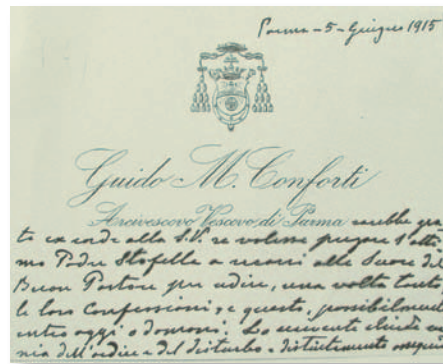 Parma - 5 - Giugno 1915
Guido M. Conforti
Arcivescovo Vescovo di Parma sarebbe gra
to ex corde alla S.V. se volesse pregare l'otti
mo Padre Stofelle a recarsi alle Suore del
Buon Pastore per udire, una volta tanto,
le loro Confessioni, e questo, possibilmente
entro oggi o domani. Lo scrivente chiede ve
nia dell'ardire e del disturbo e distintamente ossequia